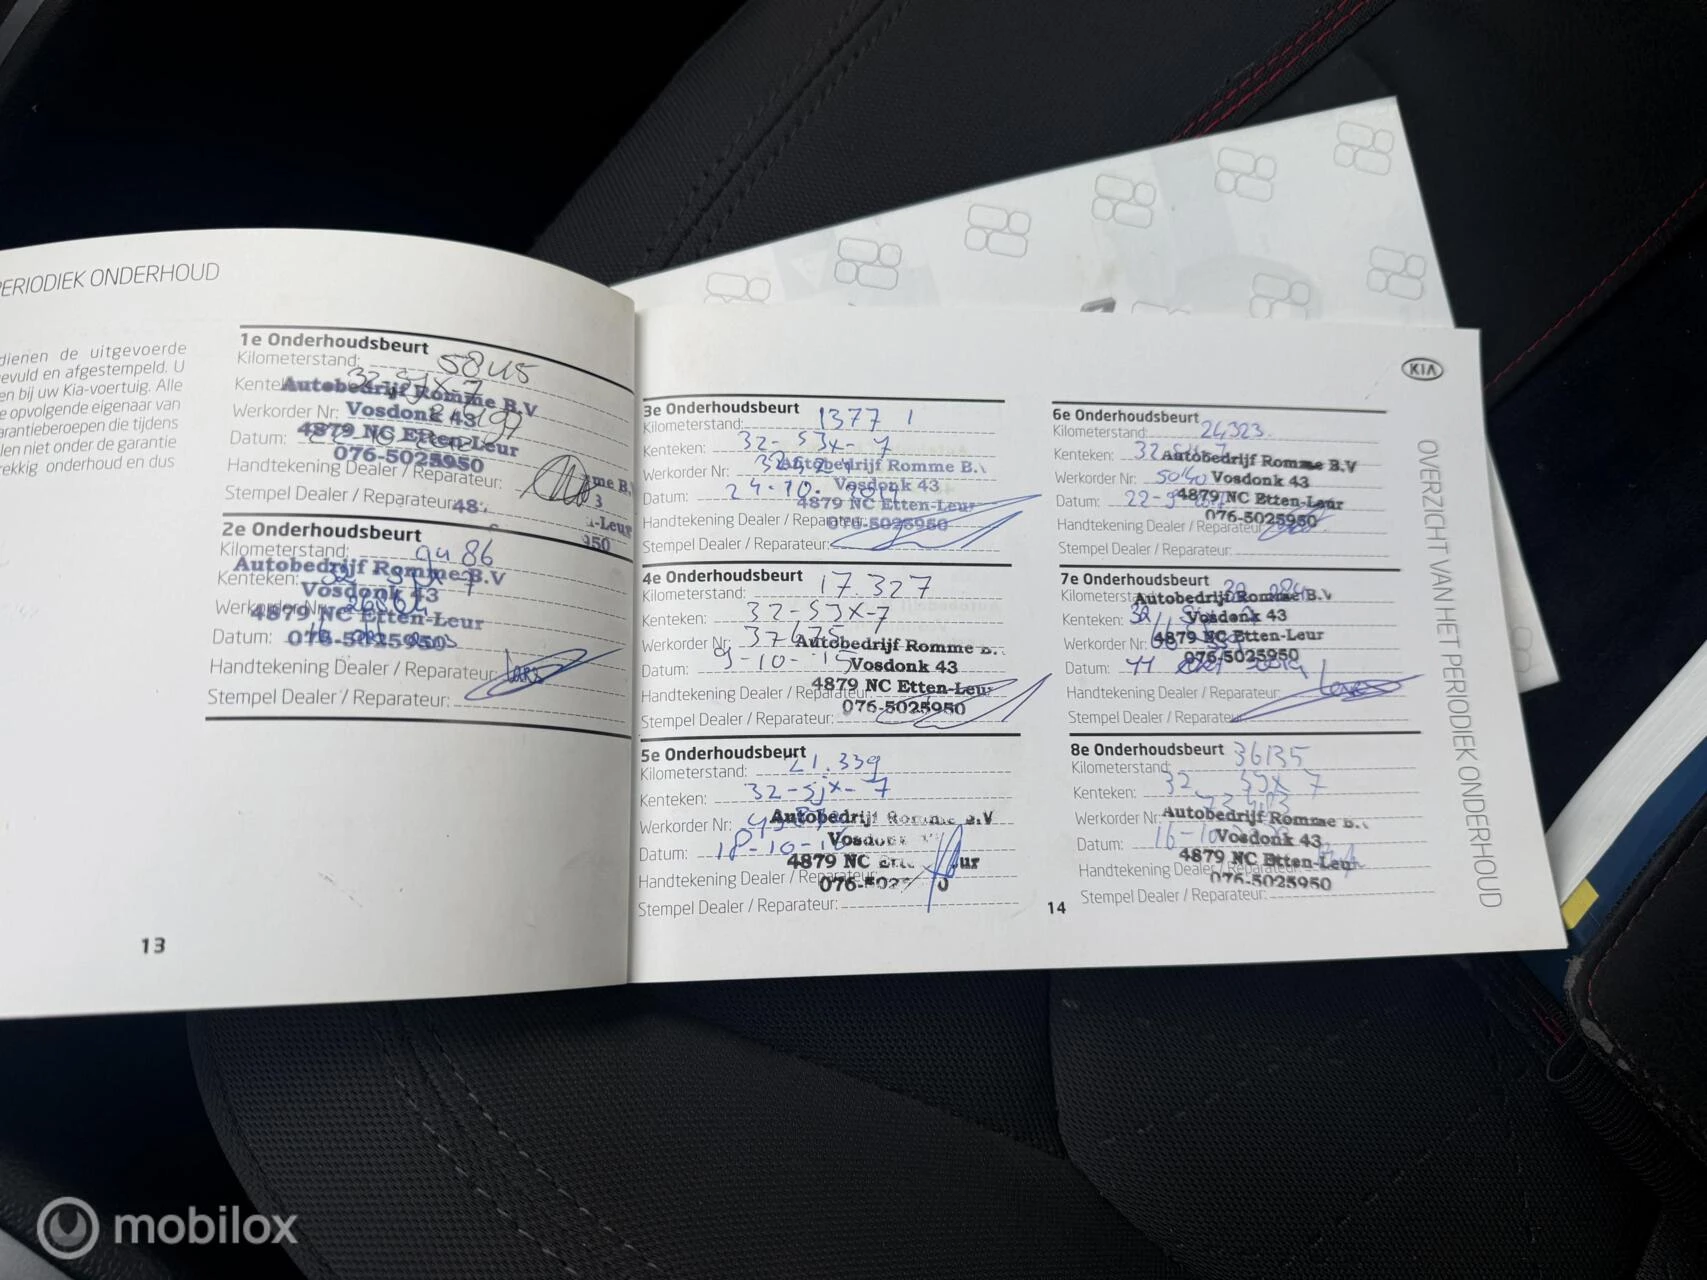 PERIODIEK ONDERHOUD
dienen de uitgevoerde
evuld en afgestempeld. U
en bij uw Kia-voertuig. Alle
e opvolgende eigenaar van
arantieberoepen die tijdens
len niet onder de garantie
rekkig onderhoud en dus
1e Onderhoudsbeurt
Kilometerstand: 5845
Kenteken: 32-SJX-7
Autobedrijf Romme B.V
Werkorder Nr:
Vosdonk 43
Datum:
4879 NC Etten-Leur
076-5025950
Handtekening Dealer / Reparateur:
Stempel Dealer / Reparateur:
2e Onderhoudsbeurt
Kilometerstand: 9486
Autobedrijf Romme B.V
Kenteken: 32 SJX 7
Vosdonk 43
Werkorder Nr:
4879 NC Etten-Leur
Datum:
076-5025950
Handtekening Dealer / Reparateur:
Stempel Dealer / Reparateur:
13
3e Onderhoudsbeurt
Kilometerstand: 13771
Kenteken: 32-SJX-7
Werkorder Nr:
Autobedrijf Romme B.V
Vosdonk 43
Datum: 24-10-2014
4879 NC Etten-Leur
Handtekening Dealer / Reparateur:
076-5025950
Stempel Dealer / Reparateur:
4e Onderhoudsbeurt
Kilometerstand: 17.327
Kenteken: 32-SJX-7
Werkorder Nr: 37475
Autobedrijf Romme B.
Datum: 9-10-15
Vosdonk 43
4879 NC Etten-Leur
Handtekening Dealer / Reparateur:
076-5025950
Stempel Dealer / Reparateur:
5e Onderhoudsbeurt
Kilometerstand: 21.339
Kenteken: 32-SJX-7
Werkorder Nr:
Autobedrijf Romme B.V
Vosdonk
Datum: 18-10-16
4879 NC Etten-Leur
Handtekening Dealer / Reparateur:
Stempel Dealer / Reparateur:
KIA
6e Onderhoudsbeurt
Kilometerstand: 24323
Kenteken: 32 SJX 7
Autobedrijf Romme B.V
Werkorder Nr: 5040
Vosdonk 43
Datum: 22-9-2017
4879 NC Etten-Leur
076-5025950
Handtekening Dealer / Reparateur:
Stempel Dealer / Reparateur:
7e Onderhoudsbeurt
Kilometerstand:
Autobedrijf Romme B.V
Kenteken: 32 SJX 7
Vosdonk 43
Werkorder Nr:
4879 NC Etten-Leur
076-5025950
Datum: 11
Handtekening Dealer / Reparateur:
Stempel Dealer / Reparateur:
8e Onderhoudsbeurt
Kilometerstand: 36135
Kenteken: 32 SJX 7
Werkorder Nr:
Autobedrijf Romme B.
Datum: 16-10
Vosdonk 43
4879 NC Etten-Leur
Handtekening Dealer / Reparateur:
076-5025950
Stempel Dealer / Reparateur:
14
OVERZICHT VAN HET PERIODIEK ONDERHOUD
mobilox